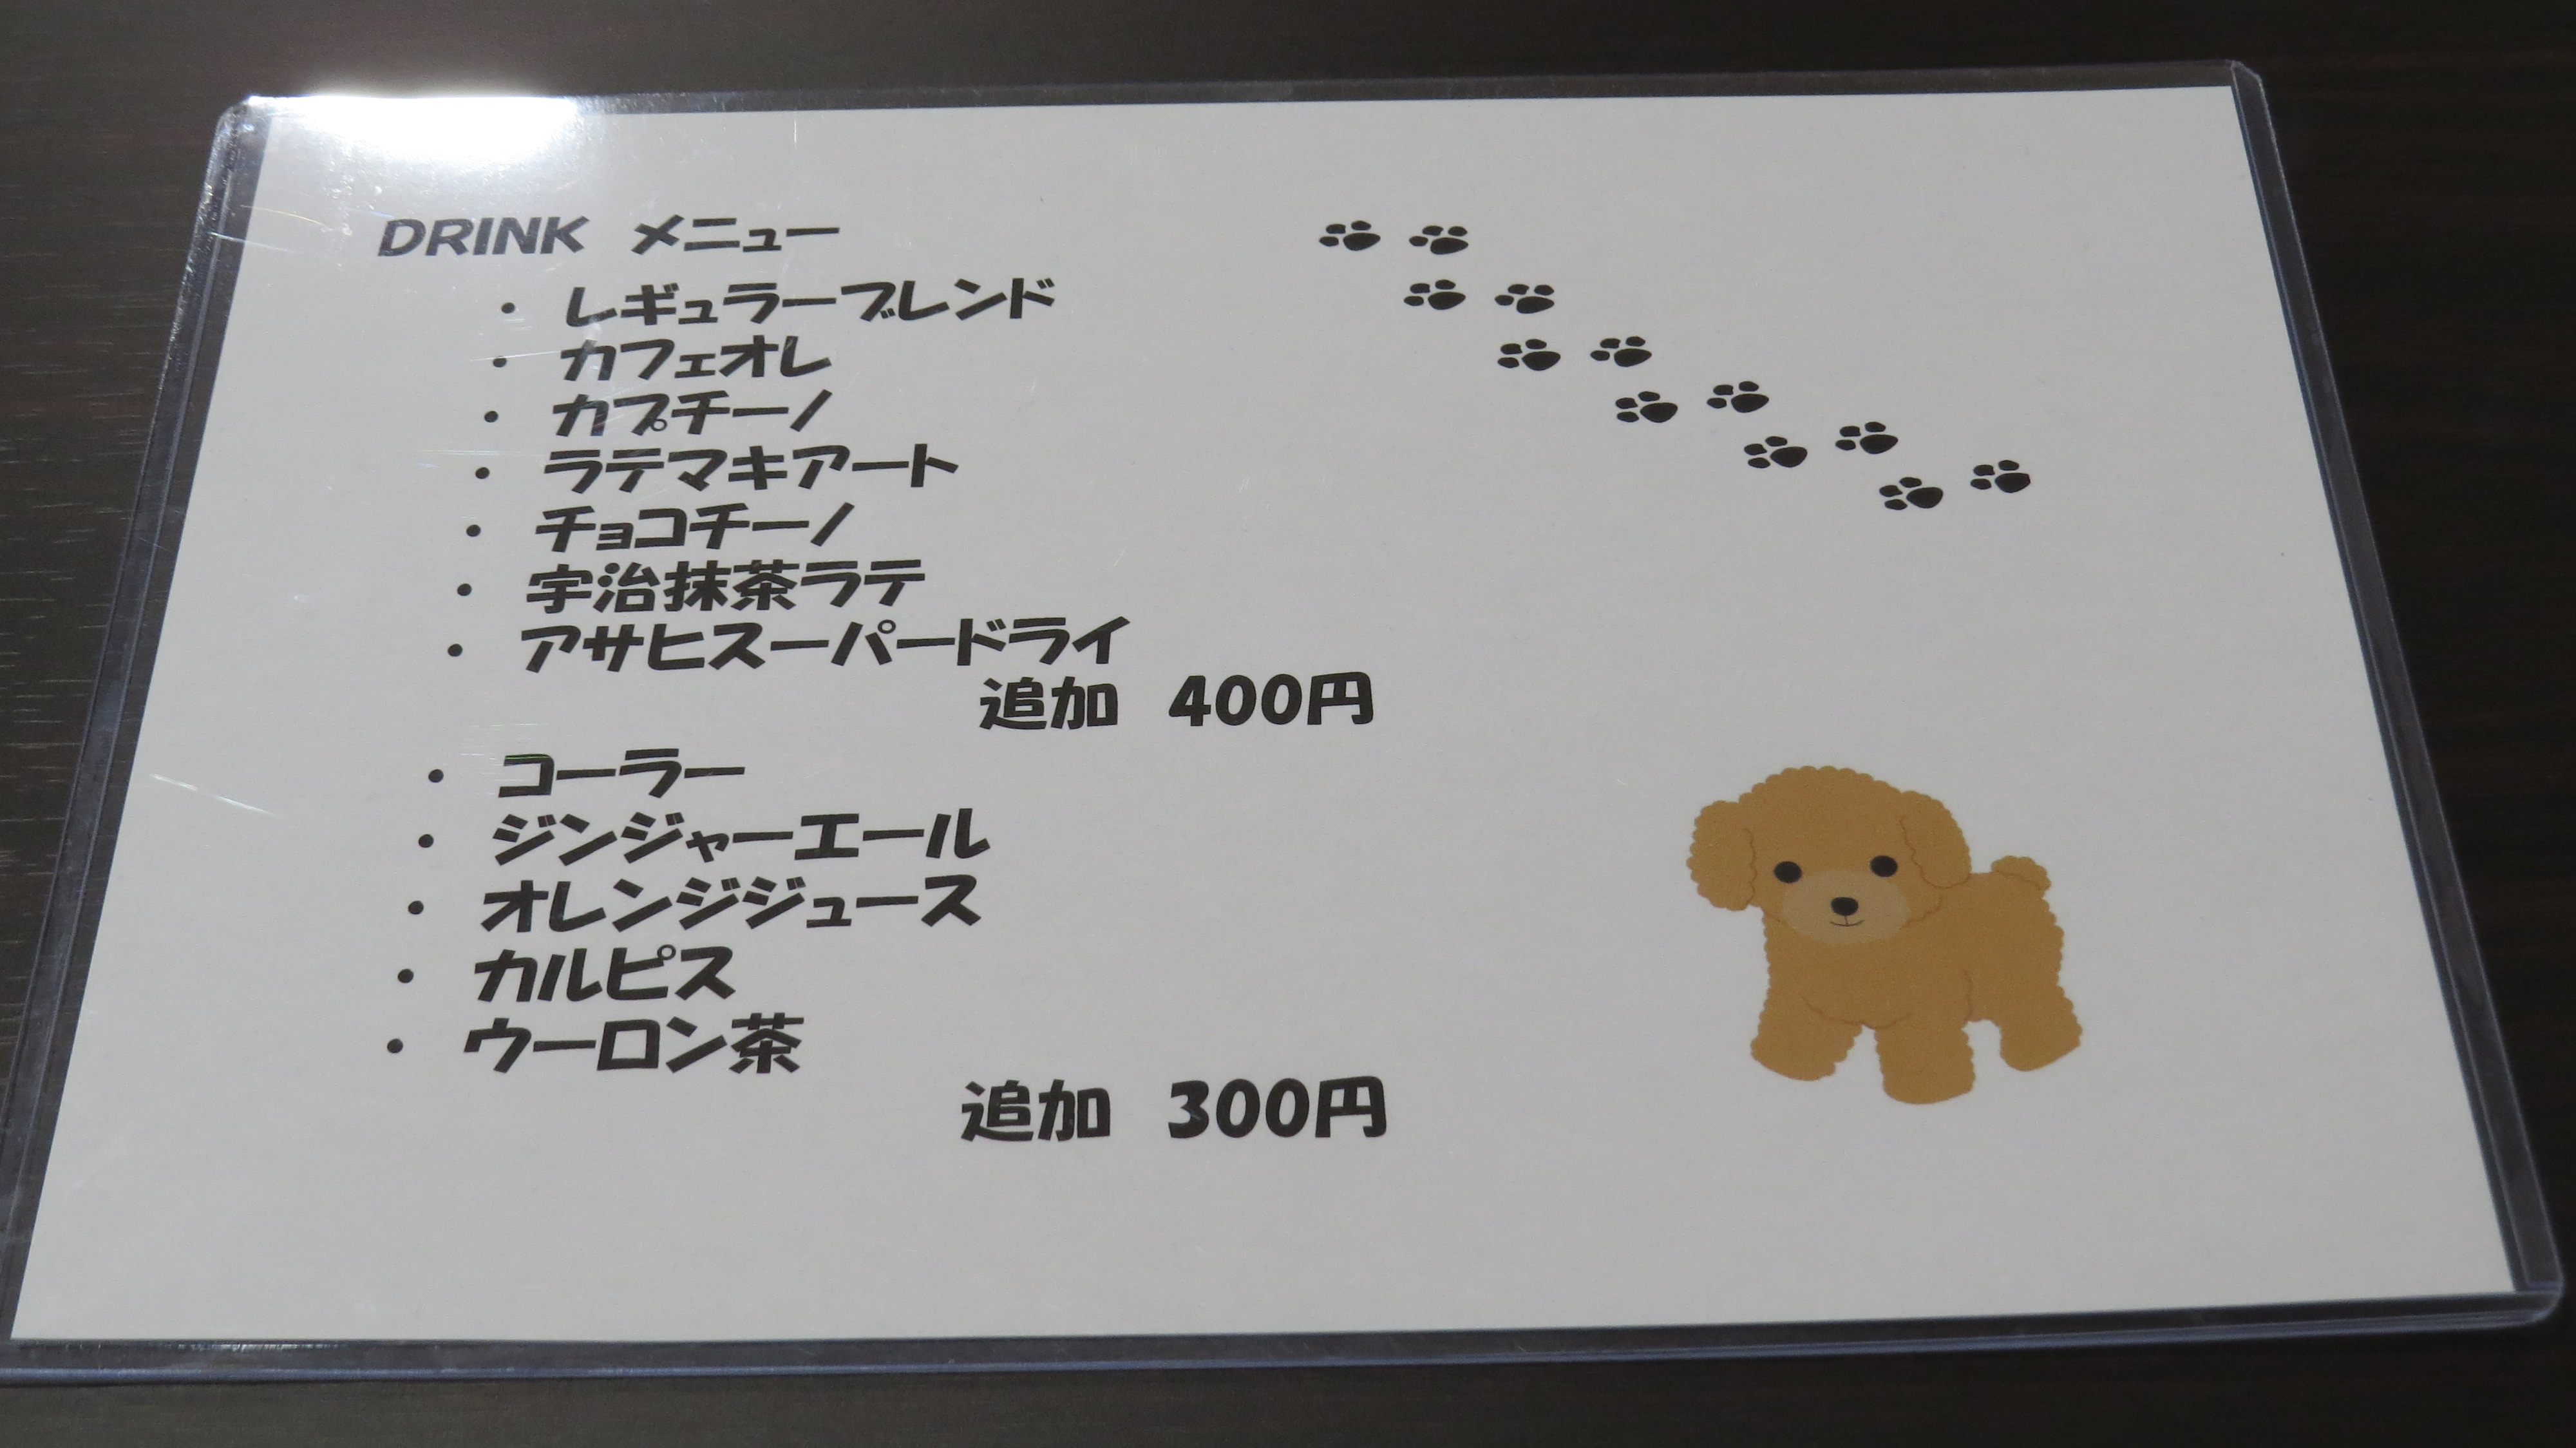 DRINK メニュー
・ レギュラーブレンド
・ カフェオレ
・ カプチーノ
・ ラテマキアート
・ チョコチーノ
・ 宇治抹茶ラテ
・ アサヒスーパードライ
追加 400円
・ コーラー
・ ジンジャーエール
・ オレンジジュース
・ カルピス
・ ウーロン茶
追加 300円